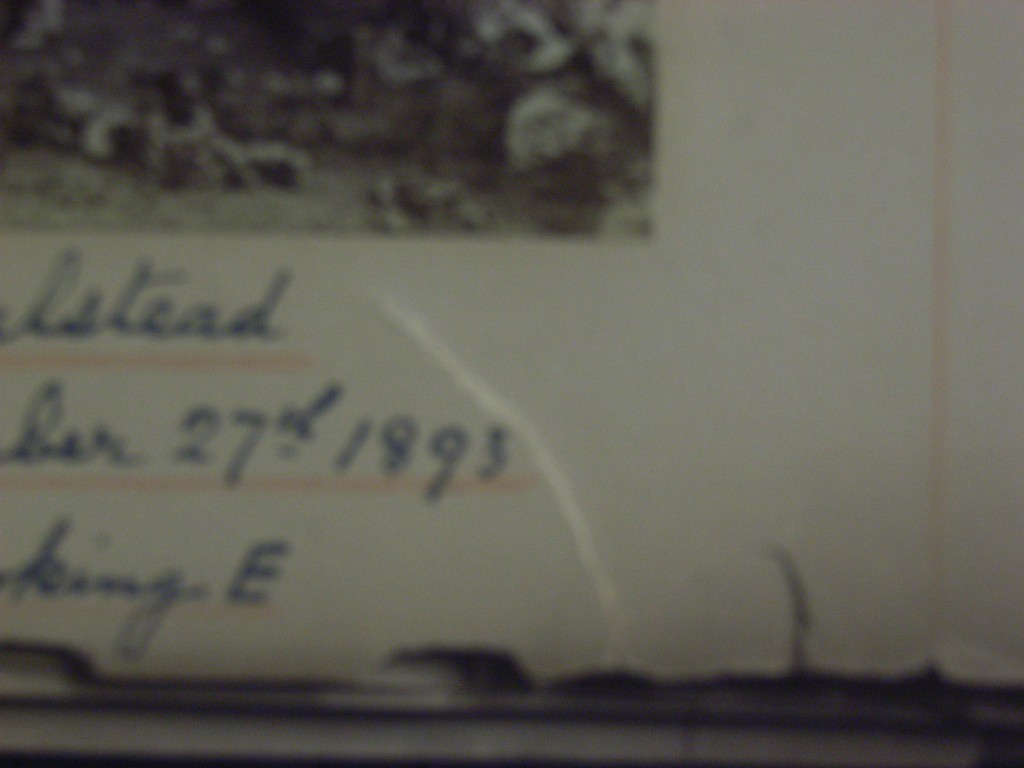 alstead
ber 27th 1893
oking E